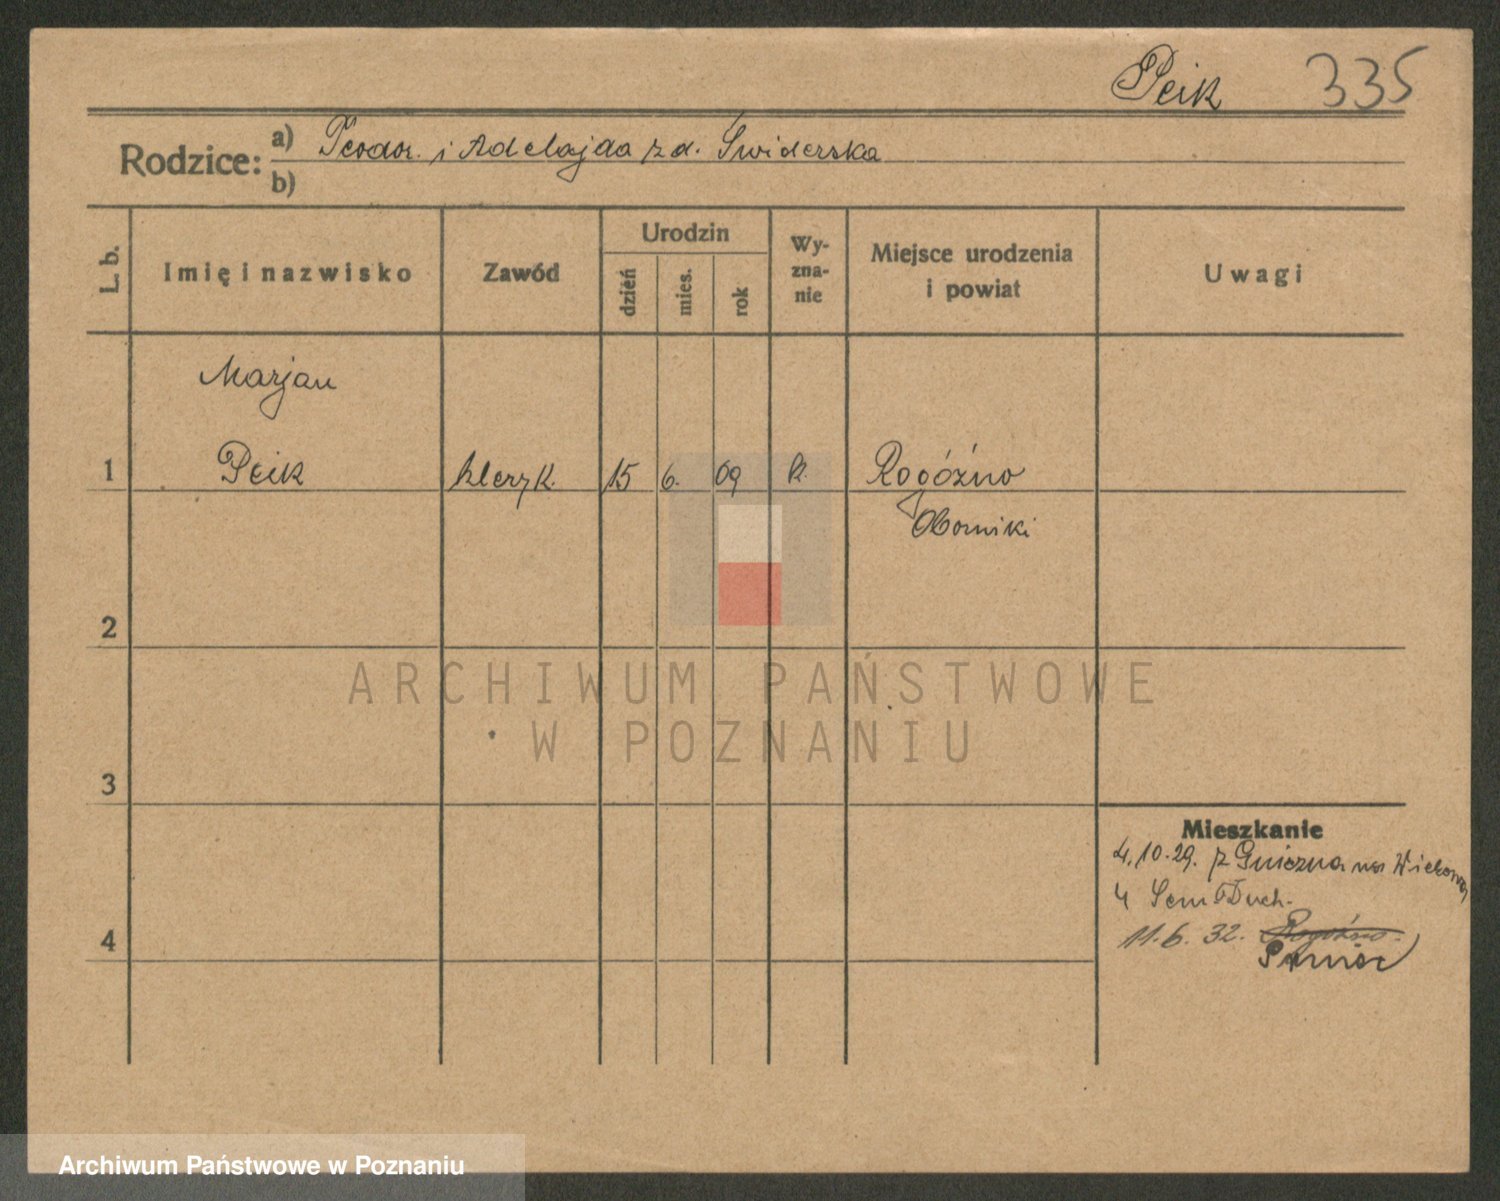 Peik 335
Rodzice: a) Teodor. i Adelajda z d. Świderska
b)
L. b.
Imię i nazwisko
Zawód
Urodzin
dzień
mies.
rok
Wy-
zna-
nie
Miejsce urodzenia
i powiat
Uwagi
Marjan
1 Peik kleryk. 15 6. 09 k. Rogóźno
Oborniki
2
ARCHIWUM PAŃSTWOWE
W POZNANIU
3
Mieszkanie
4.10.29. z Gniezna na Wieżową
4 Sem Duch.
4
11.6.32. Rogóźno.
Archiwum Państwowe w Poznaniu